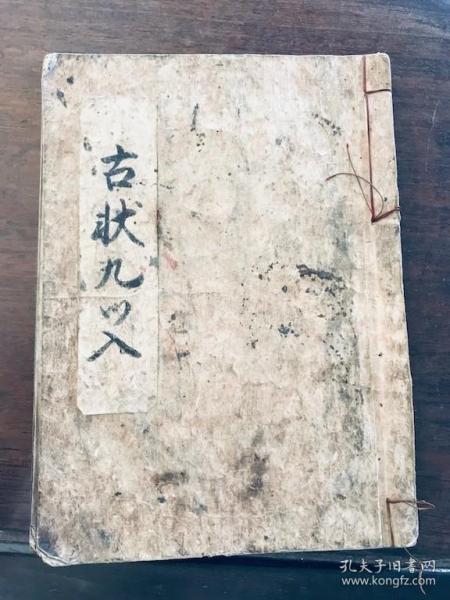 古状九ツ入
孔夫子旧书网
www.kongfz.com